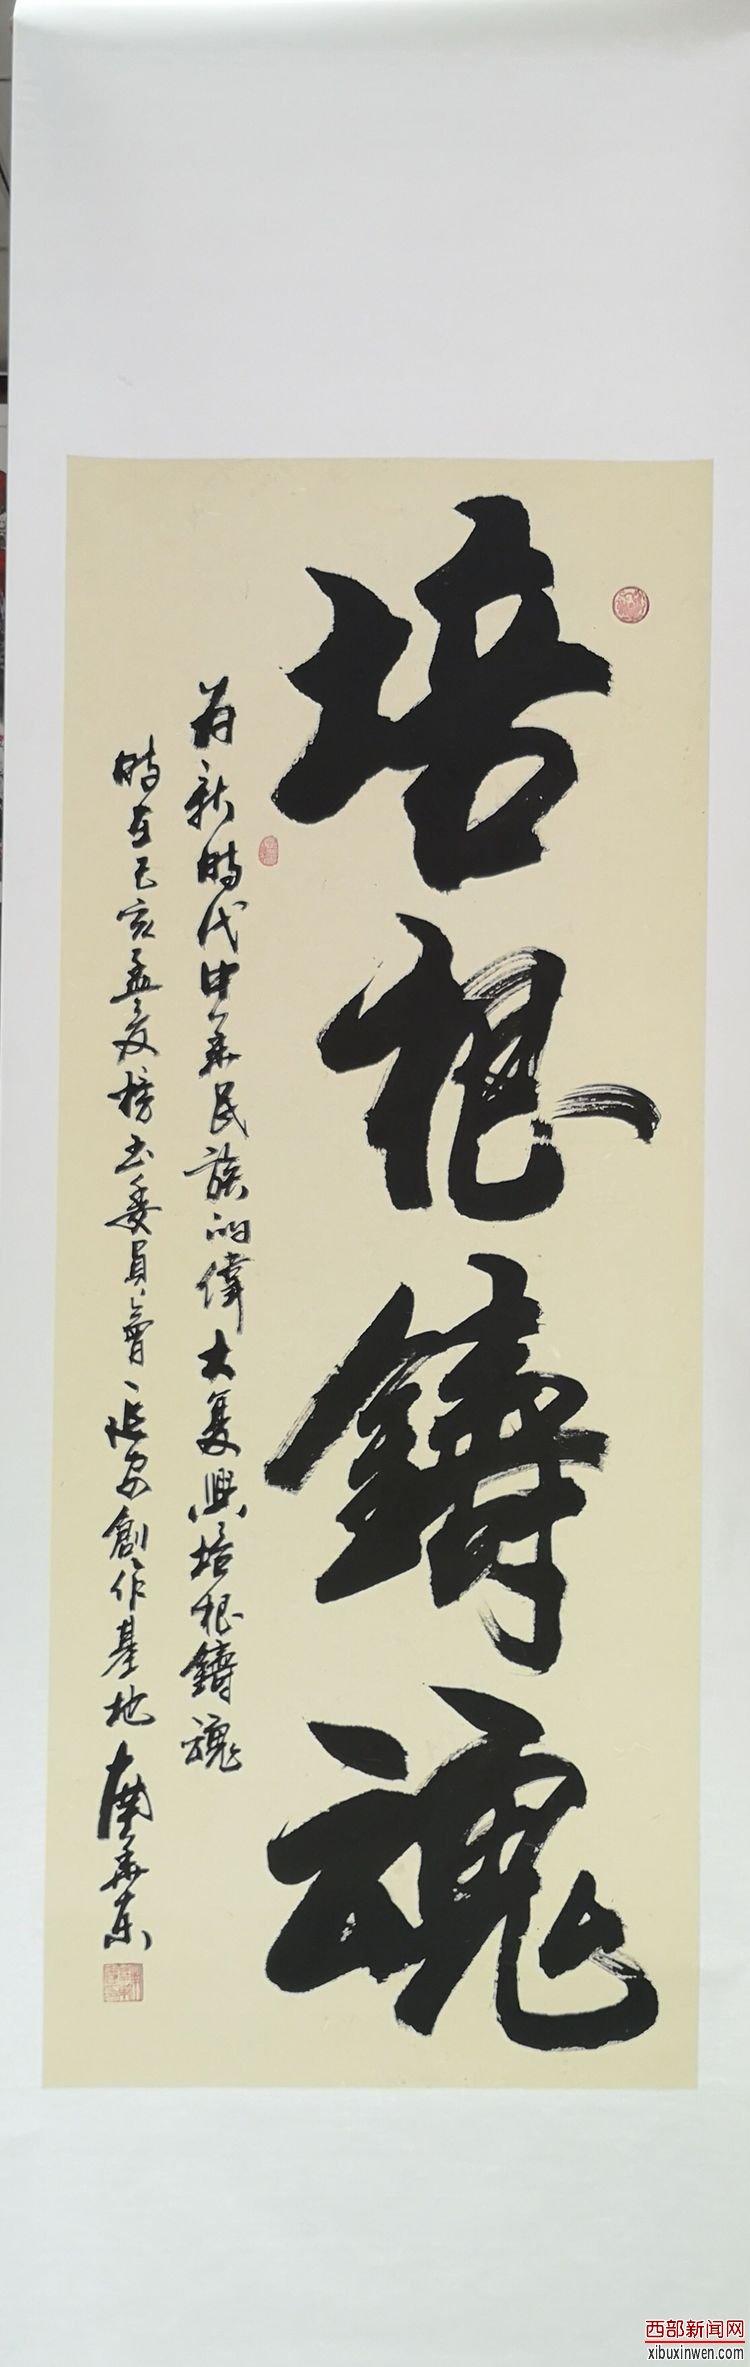 培根鑄魂
為新時代中華民族的偉大复興培根鑄魂
時在己亥孟夏榜书委員會延安創作基地 蘭華东
西部新闻网
xibuxinwen.com